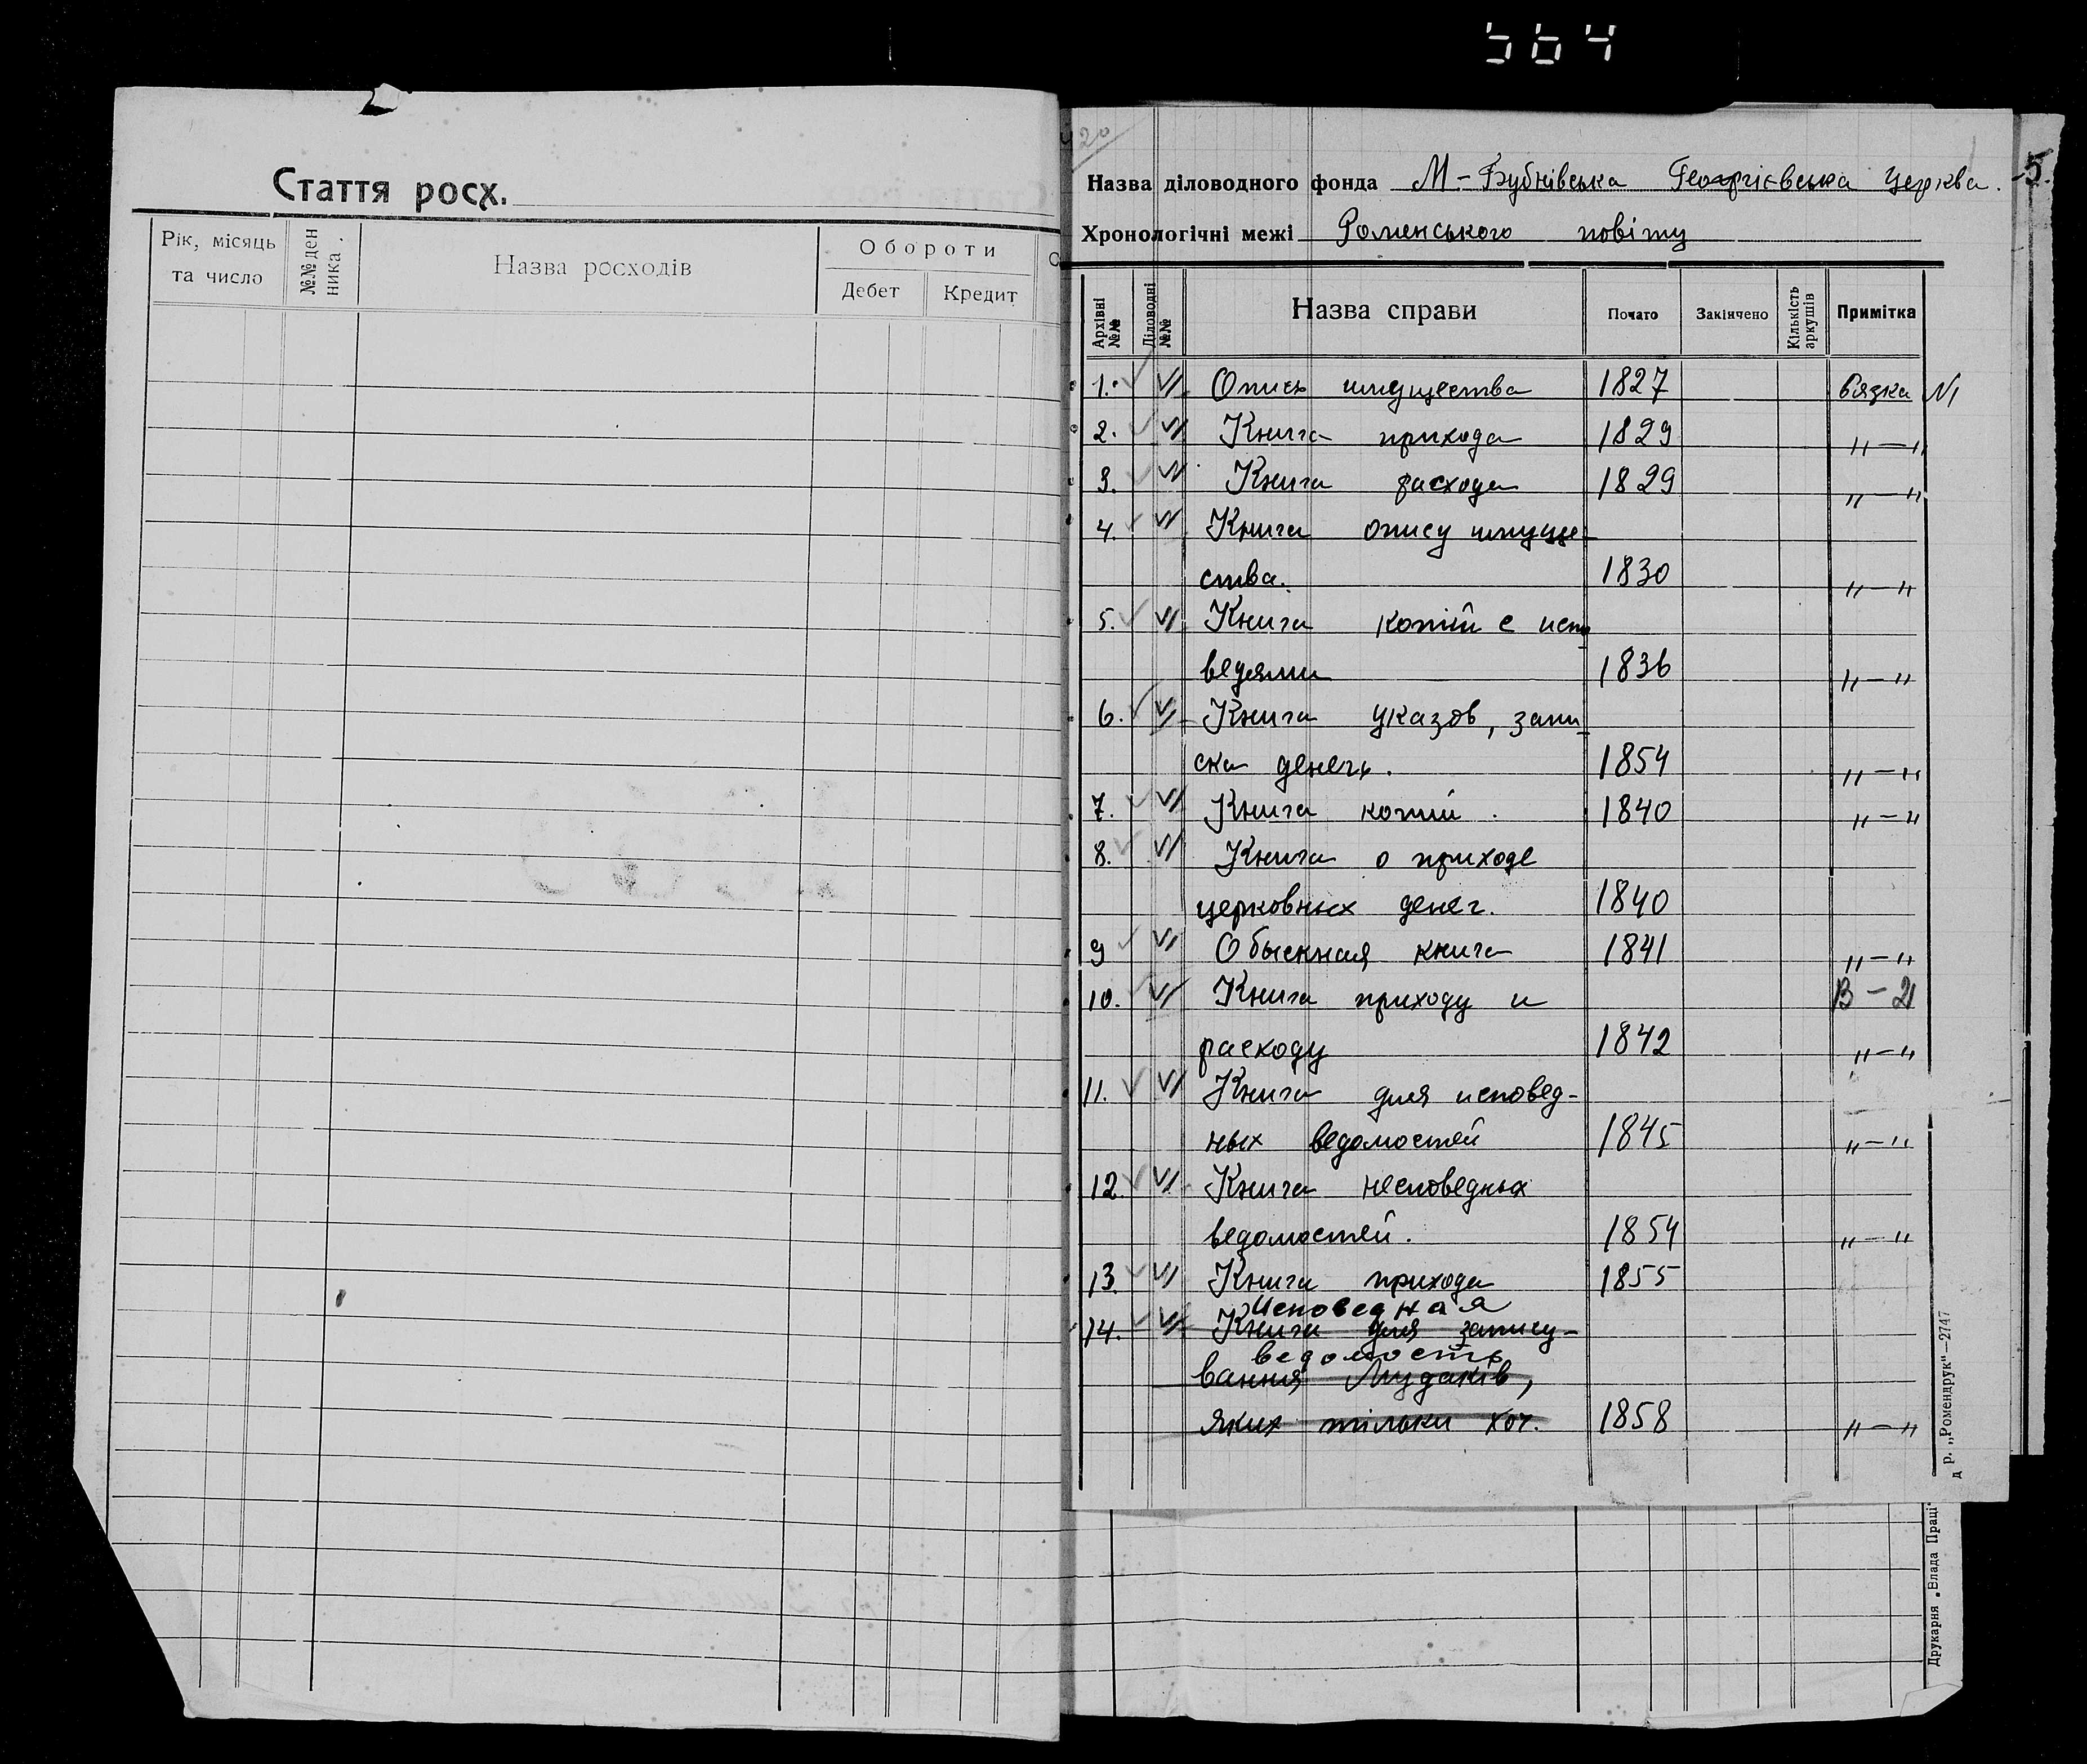 564
Стаття росх.
Рік, місяць та число
№№ ден ника.
Назва росходів
Обороти
Дебет
Кредит
20
5.
Назва діловодного фонда М-Бубнівська Георгієвська церква.
Хронологічні межі Роменського повіту
Архівні №№
Діловодні №№
Назва справи
Почато
Закінчено
Кількість аркушів
Примітка
1. Опись имущества 1827 вязка N1
2. Книга прихода 1829 „—„
3. Книга расхода 1829 „—„
4. Книга опису имуще-
ства. 1830 „—„
5. Книга копій с испо-
ведями 1836 „—„
6. Книга указов, запи-
ска денегь. 1854 „—„
7. Книга копий. 1840 „—„
8. Книга о приходе
церковных денег. 1840
9 Обыскная книга 1841 „—„
10. Книга приходу и В-21
расходу 1842 „—„
11. Книга для исповед-
ных ведомостей 1845 „—„
12. Книга несповедных
ведомостей. 1854 „—„
13. Книга прихода 1855
Исповедная
14. Книга для запису-
ведомость
вання
яких тільки хоч. 1858 „—„
д р. „Ромендрук"—2747
Друкарня „Влада Праці"